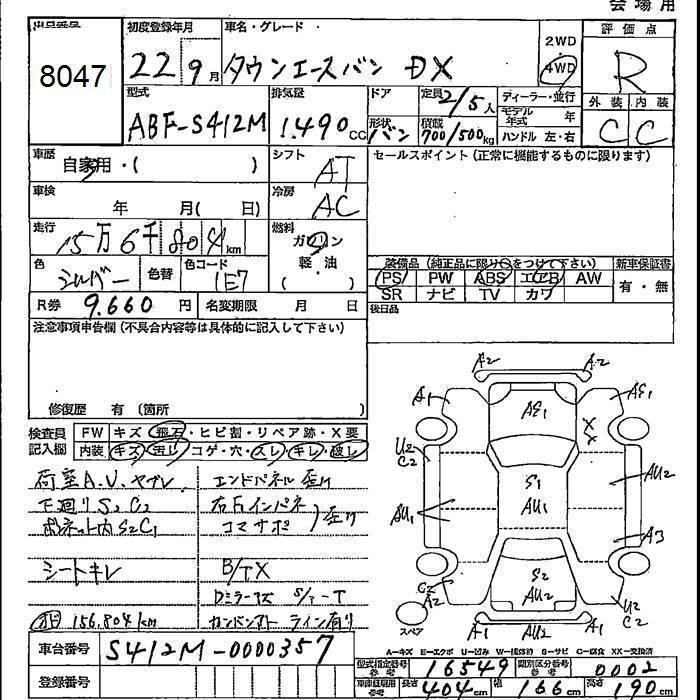 会場用
出品番号 8047
初度登録年月 22 9月
車名・グレード タウンエースバン DX
2WD 4WD
評価点 R
外装 内装
C C
型式 ABF-S412M
排気量 1.490 CC
ドア
形状 バン
定員 2/5人
積載 700/500kg
ディーラー・並行
モデル年式 年
ハンドル 左・右
車歴 自家用・( )
シフト AT
セールスポイント(正常に機能するものに限ります)
車検 年 月( 日)
冷房 AC
走行 15万6千804km
燃料 ガソリン 軽・油
色 シルバー 色替 色コード 1E7
装備品(純正品に限り○をつけて下さい)
新車保証書 有・無
PS PW ABS エアB AW
SR ナビ TV カワ
R券 9.660円 名変期限 月 日
後日品
注意事項申告欄(不具合内容等は具体的に記入して下さい)
修復歴 有(箇所 )
検査員記入欄
FW キズ・飛石・ヒビ割・リペア跡・X要
内装 キズ・汚レ・コゲ・穴・スレ・キレ・破レ
荷室A.U.ヤブレ エンドパネル歪リ
下廻りS2C2 右右インパネ
ボンネット内S2C1 コアサポ)歪リ
シートキレ B/TX
Dミラーキズ S/ーT
メーター 156.804km ライン有り
車台番号 S412M-0000357
登録番号
A2 A2
A1 AE1 AE1
X
X
U2
C2
S1
AU1
AU2
AU1
A3
C2
A2
S2
AU2
U2
C2
スペア
A1 AU2 A1
A-キズ E-エクボ U-凹み W-補修跡 S-サビ C-腐食 XX-交換済
型式指定番号 参考 16549 類別区分番号 参考 0002
車両諸元 参考 長さ 404cm 幅 166cm 高さ 190cm